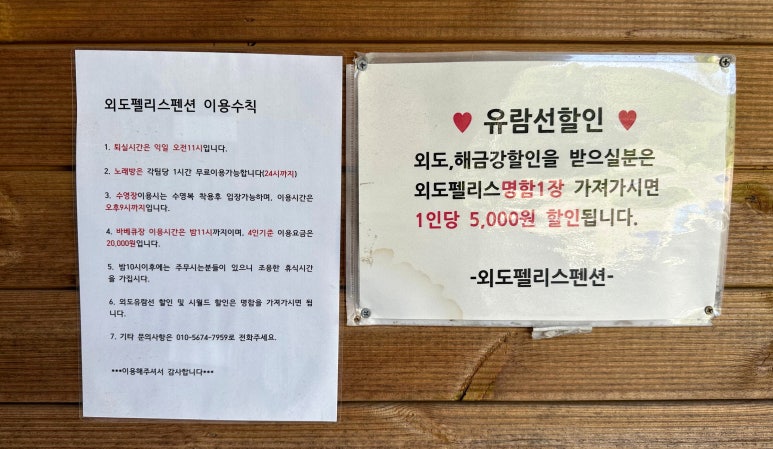 외도펠리스펜션 이용수칙
1. 퇴실시간은 익일 오전11시입니다.
2. 노래방은 각팀당 1시간 무료이용가능합니다(24시까지)
3. 수영장이용시는 수영복 착용후 입장가능하며, 이용시간은
오후9시까지입니다.
4. 바베큐장 이용시간은 밤11시까지이며, 4인기준 이용요금은
20,000원입니다.
5. 밤10시이후에는 주무시는분들이 있으니 조용한 휴식시간
을 가집시다.
6. 외도유람선 할인 및 시월드 할인은 명함을 가져가시면 됩
니다.
7. 기타 문의사항은 010-5674-7959로 전화주세요.
***이용해주셔서 감사합니다***
♥ 유람선할인 ♥
외도,해금강할인을 받으실분은
외도펠리스명함1장 가져가시면
1인당 5,000원 할인됩니다.
-외도펠리스펜션-